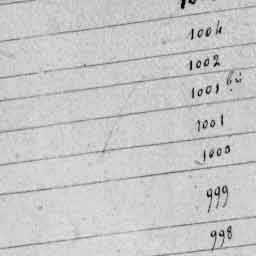 1004
1002
1001 bis
1001
1000
999
998